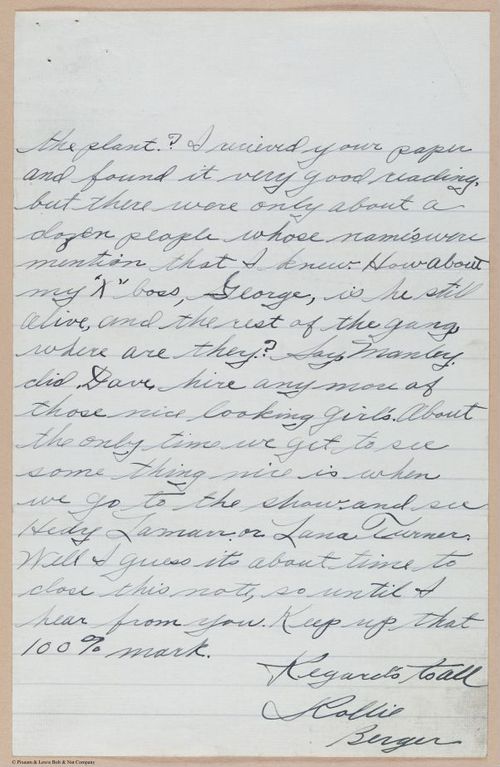 the plant.? I recieved your paper
and found it very good reading,
but there were only about a
dozen people whose name's were
mention that I knew. How about
my "X" boss, George, is he still
alive, and the rest of the gang,
where are they? Say, Manley,
did Dave, hire any more of
those nice looking girls. About
the only time we get to see
some thing nice is when
we go to the show and see
Hedy Lamarr or Lana Turner.
Well I guess it's about time to
close this note, so until I
hear from you. Keep up that
100% mark.
Regard's to all
Rollie
Berger
© Pheasants & Lewis Bolt & Nut Company